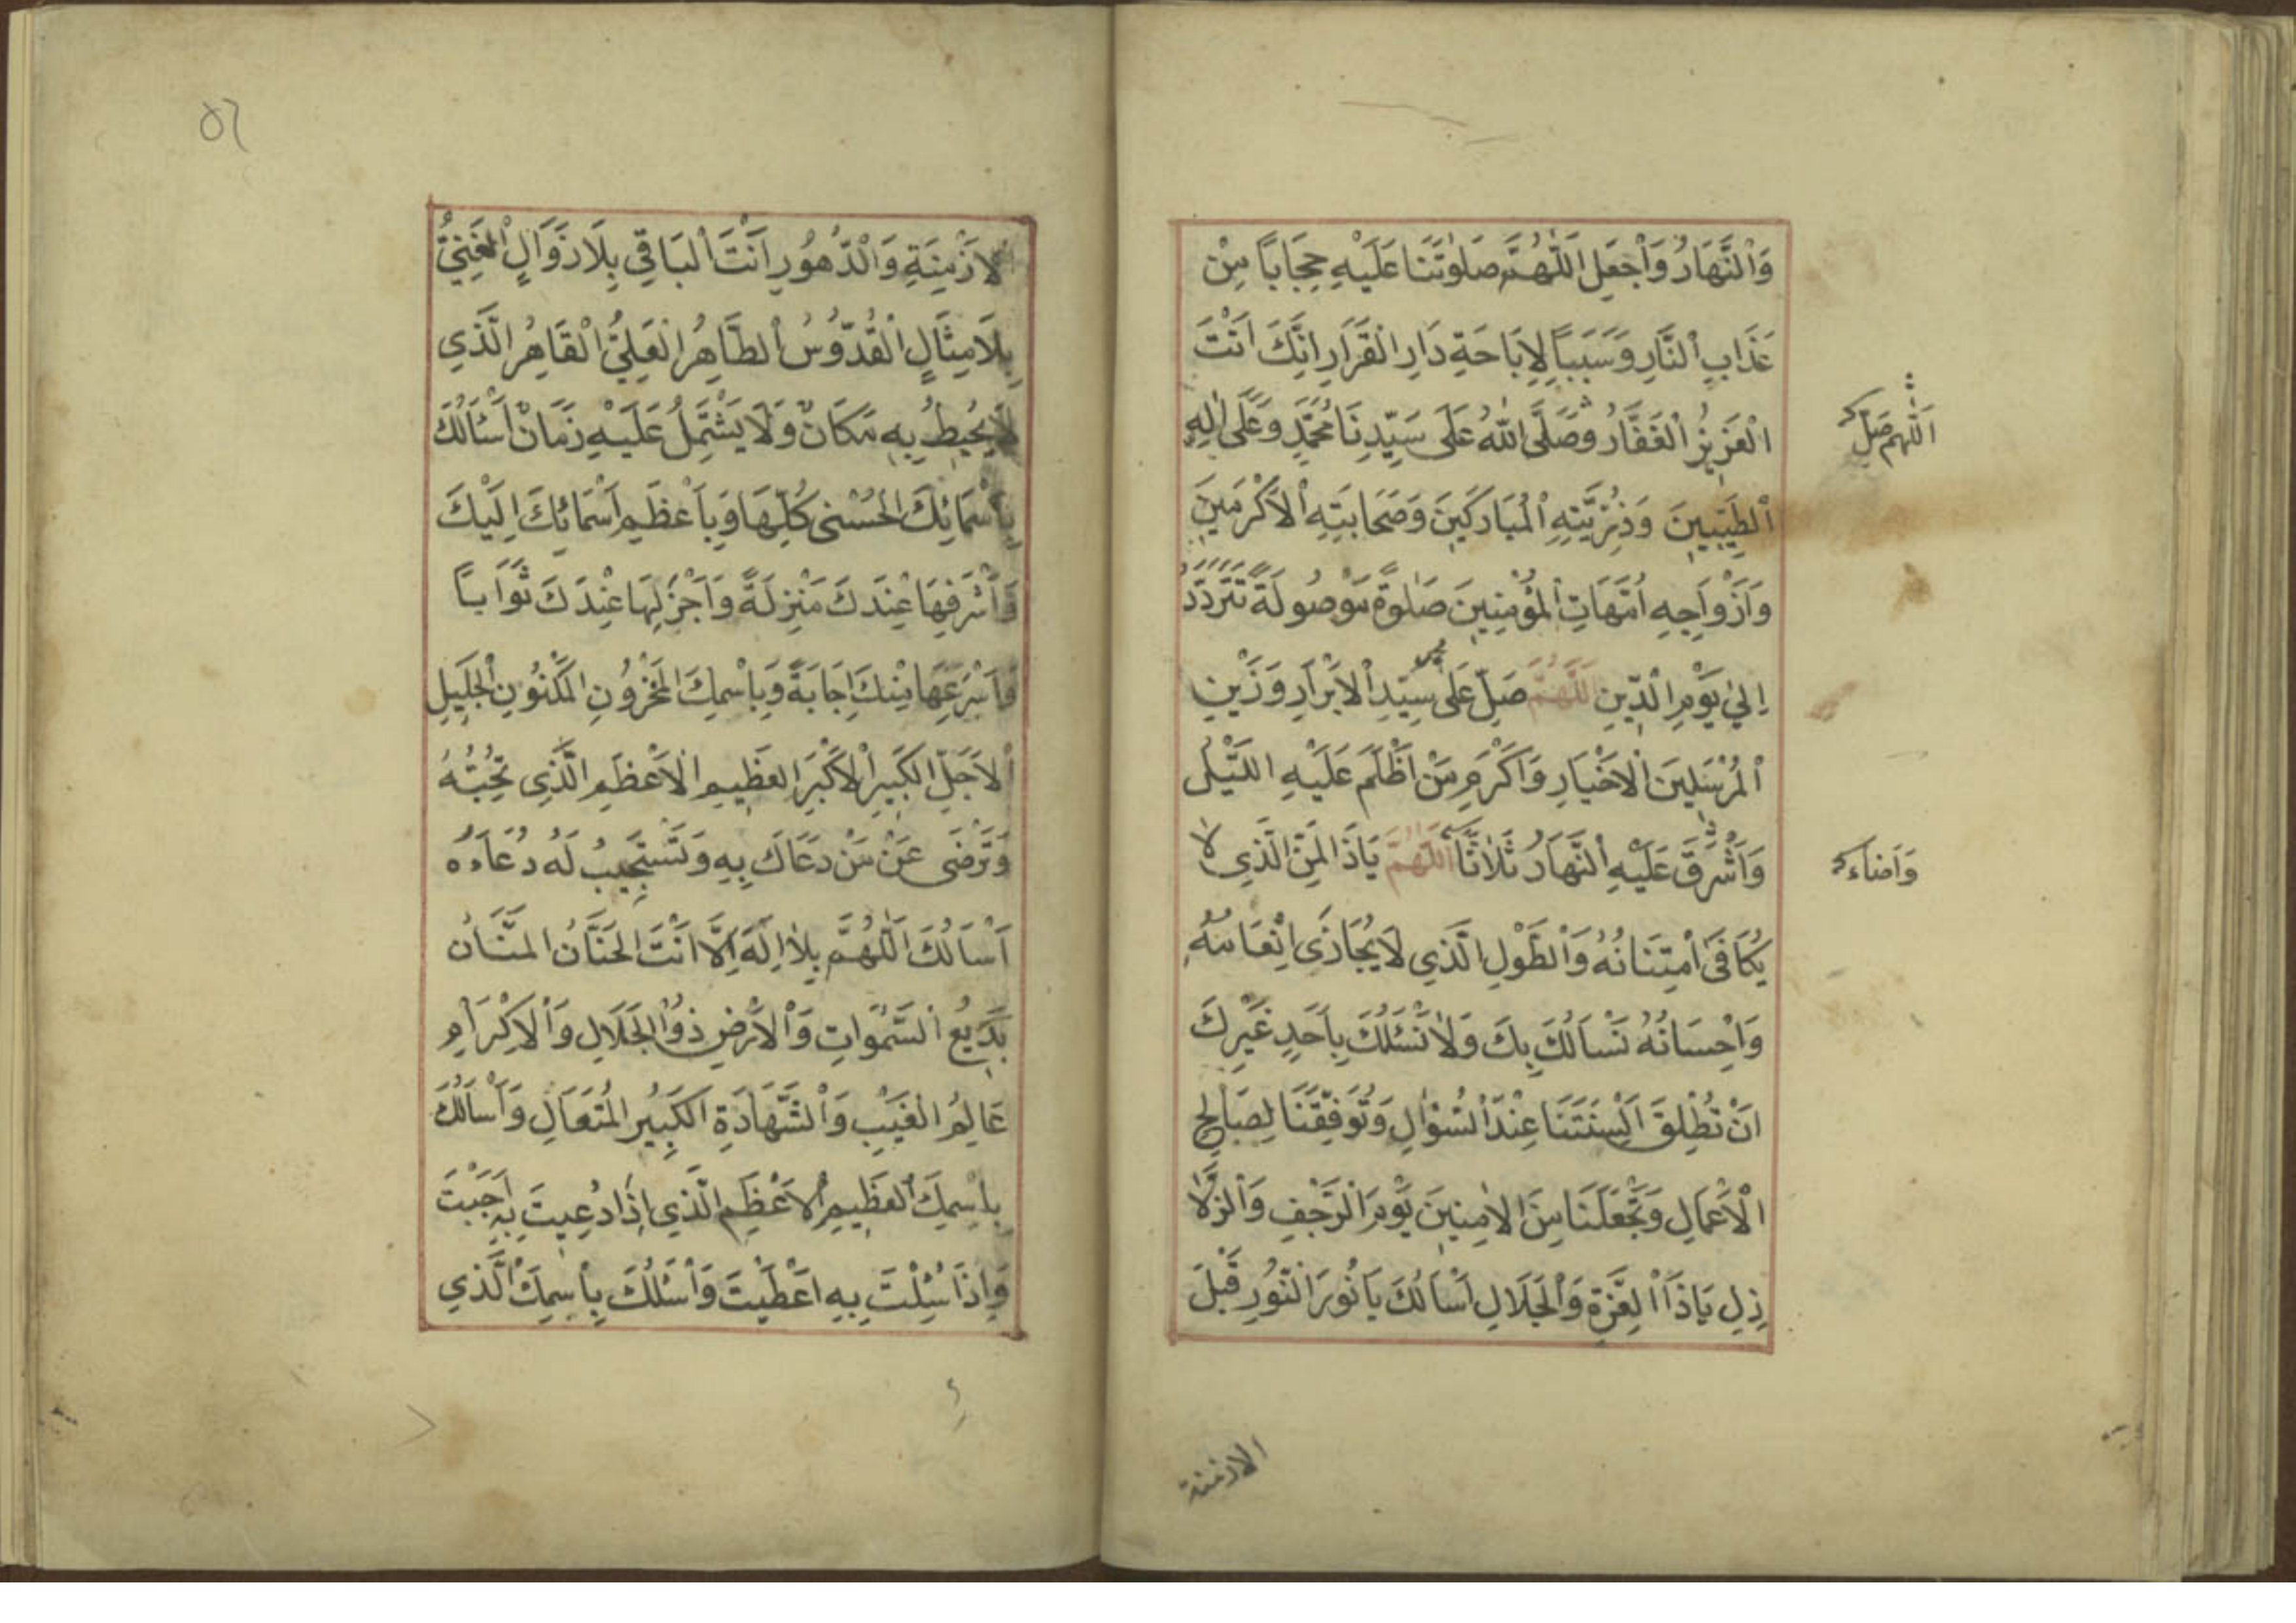 وَالنَّهَارُ وَاجْعَلِ اللّٰهُمَّ صَلٰوتَنَا عَلَيْهِ حِجَابًا مِنْ
عَذَابِ النَّارِ وَسَبَبًا لِإِبَاحَةِ دَارِ الْقَرَارِ اِنَّكَ اَنْتَ
الْعَزِيزُ الْغَفَّارُ وَصَلَّى اللّٰهُ عَلَى سَيِّدِنَا مُحَمَّدٍ وَعَلَى اٰلِهِ
الطَّيِّبِينَ وَذُرِّيَّتِهِ الْمُبَارَكِينَ وَصَحَابَتِهِ الْاَكْرَمِينَ
وَاَزْوَاجِهِ اُمَّهَاتِ الْمُؤْمِنِينَ صَلٰوةً مَوْصُولَةً تَتَرَدَّدُ
اِلىٰ يَوْمِ الدِّينِ اللّٰهُمَّ صَلِّ عَلَى سَيِّدِ الْاَبْرَارِ وَزَيْنِ
الْمُرْسَلِينَ الْاَخْيَارِ وَاَكْرَمِ مَنْ اَظْلَمَ عَلَيْهِ اللَّيْلُ
وَاَشْرَقَ عَلَيْهِ النَّهَارُ ثَلَاثًا اَللّٰهُمَّ يَاذَا الْمَنِّ الَّذِي لَا
يُكَافَى امْتِنَانُهُ وَالطَّوْلِ الَّذِي لَا يُجَازَى اِنْعَامُهُ
وَاِحْسَانُهُ نَسْاَلُكَ بِكَ وَلَا نَسْئَلُكَ بِاَحَدٍ غَيْرِكَ
اَنْ تُطْلِقَ اَلْسِنَتَنَا عِنْدَ السُّؤَالِ وَتُوَفِّقَنَا لِصَالِحِ
الْاَعْمَالِ وَتَجْعَلَنَا مِنَ الْاٰمِنِينَ يَوْمَ الرَّجْفِ وَالزَّلَا
زِلِ يَاذَا الْعِزَّةِ وَالْجَلَالِ اَسْاَلُكَ يَا نُورَ النُّورِ قَبْلَ
اَللّٰهُمَّ صَلِّ
وَاَضَاءَ
الازمنة
٥٦
الْاَزْمِنَةِ وَالدُّهُورِ اَنْتَ الْبَاقِي بِلَا زَوَالٍ الْغَنِيُّ
بِلَا مِثَالٍ الْقُدُّوسُ الطَّاهِرُ الْعَلِيُّ الْقَاهِرُ الَّذِي
لَا يُحِيطُ بِهِ مَكَانٌ وَلَا يَشْتَمِلُ عَلَيْهِ زَمَانٌ اَسْئَالُكَ
بِاَسْمَائِكَ الْحُسْنٰى كُلِّهَا وَبِاَعْظَمِ اَسْمَائِكَ اِلَيْكَ
وَاَشْرَفِهَا عِنْدَكَ مَنْزِلَةً وَاَجْزَلِهَا عِنْدَكَ ثَوَابًا
وَاَسْرَعِهَا مِنْكَ اِجَابَةً وَبِاسْمِكَ الْمَخْزُونِ الْمَكْنُونِ الْجَلِيلِ
الْاَجَلِّ الْكَبِيرِ الْاَكْبَرِ الْعَظِيمِ الْاَعْظَمِ الَّذِي تُحِبُّهُ
وَتَرْضَى عَنْ مَنْ دَعَاكَ بِهِ وَتَسْتَجِيبُ لَهُ دُعَاءَهُ
اَسْاَلُكَ اللّٰهُمَّ بِلَا اِلٰهَ اِلَّا اَنْتَ الْحَنَّانُ الْمَنَّانُ
بَدِيعُ السَّمٰوَاتِ وَالْاَرْضِ ذُو الْجَلَالِ وَالْاِكْرَامِ
عَالِمُ الْغَيْبِ وَالشَّهَادَةِ الْكَبِيرُ الْمُتَعَالِ وَاَسْاَلُكَ
بِاسْمِكَ الْعَظِيمِ الْاَعْظَمِ الَّذِي اِذَا دُعِيتَ بِهِ اَجَبْتَ
وَاِذَا سُئِلْتَ بِهِ اَعْطَيْتَ وَاَسْئَلُكَ بِاسْمِكَ الَّذِي